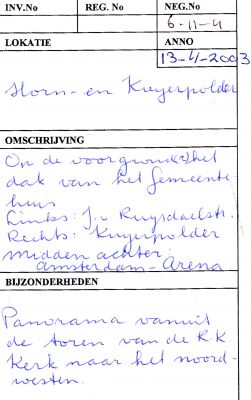 INV.No REG. No NEG.No
6-11-4
LOKATIE ANNO
13-4-2003
Horn- en Kuyerpolder
OMSCHRIJVING
Op de voorgrond het
dak van het Gemeente
huis
Links: J.v Ruysdaelstr.
Rechts: Kuyerpolder
midden achter:
Amsterdam-Arena
BIJZONDERHEDEN
Panorama vanuit
de toren van de R.K
Kerk naar het noord-
westen.